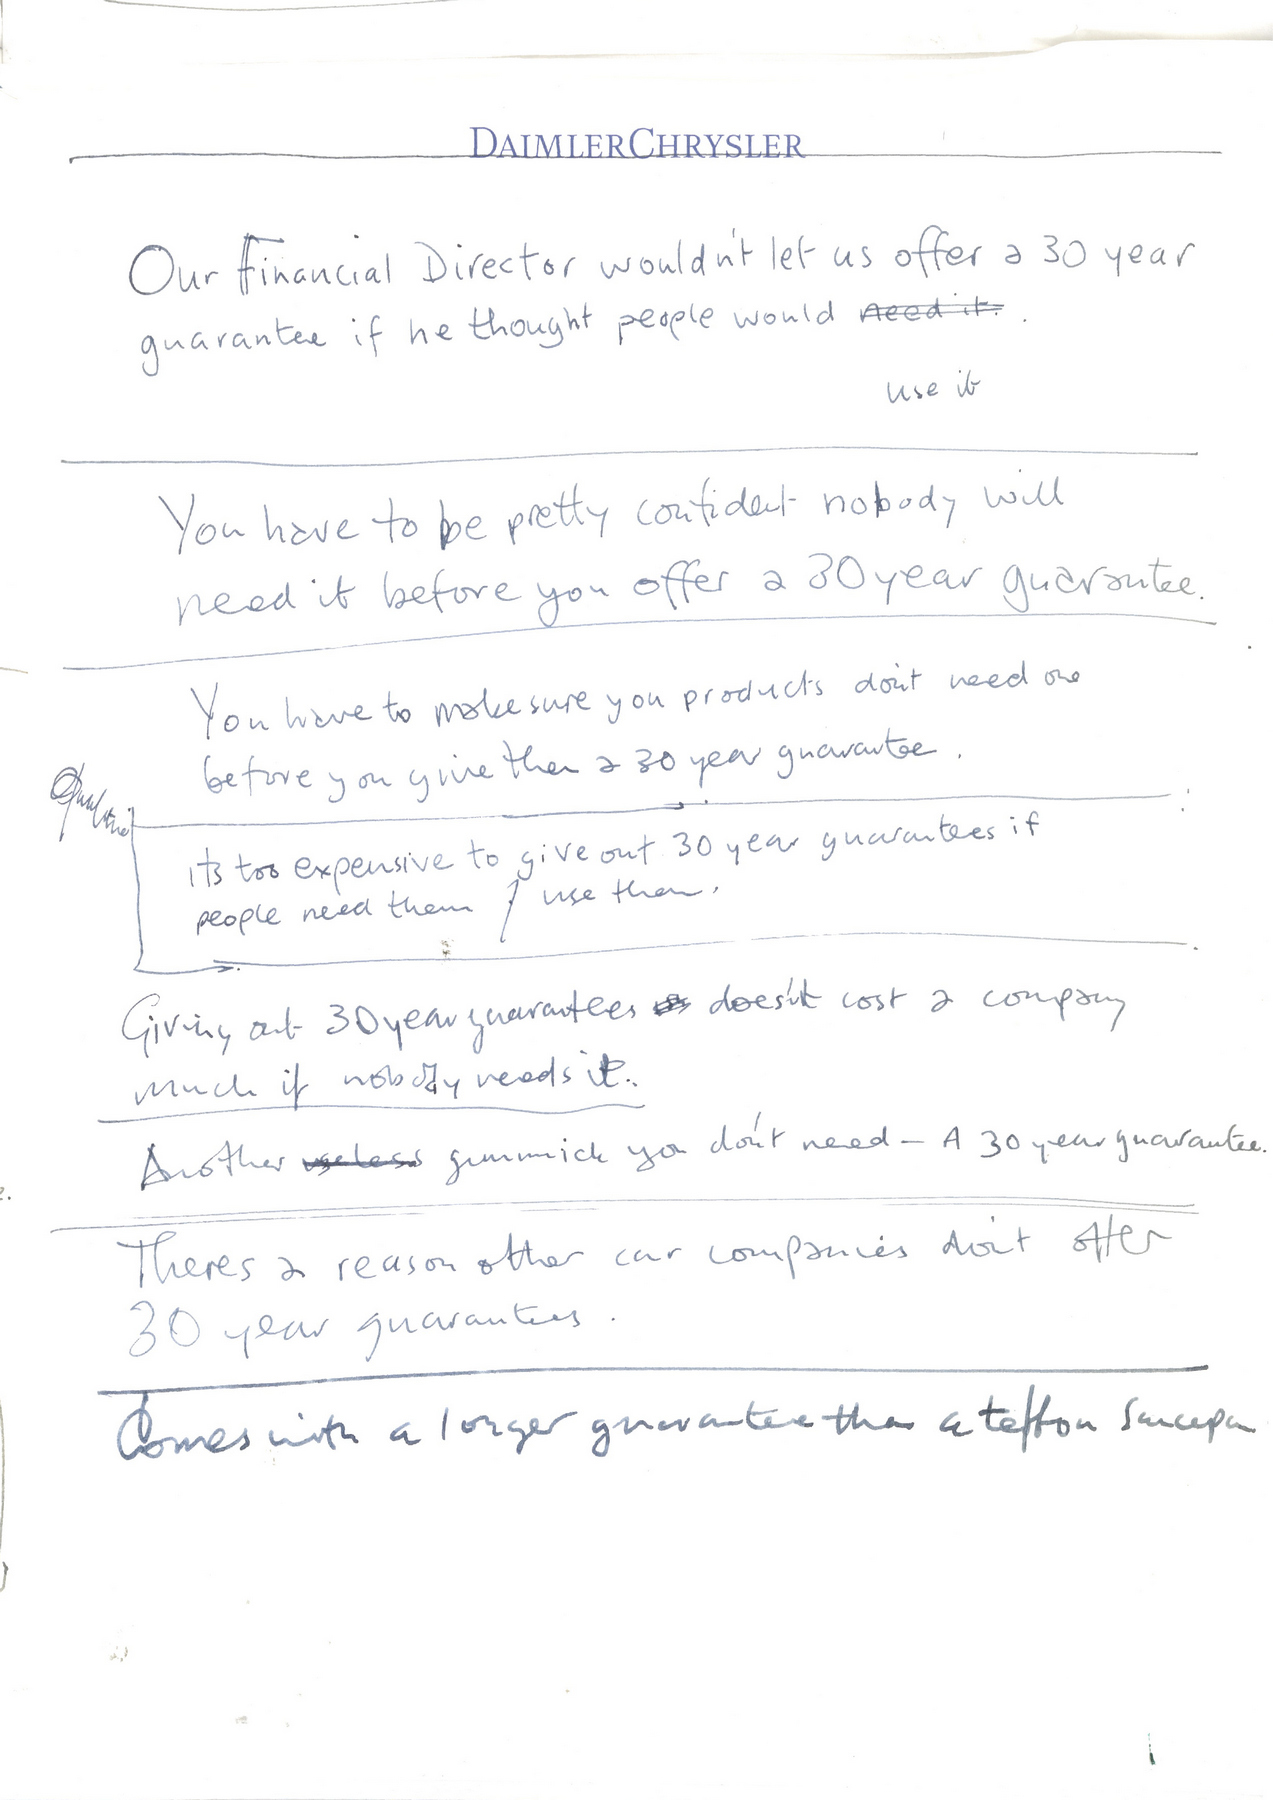 DAIMLERCHRYSLER
Our Financial Director wouldn't let us offer a 30 year
guarantee if he thought people would need it.
use it
You have to be pretty confident nobody will
need it before you offer a 30 year guarantee.
You have to make sure you products don't need one
before you give them a 30 year guarantee.
its too expensive to give out 30 year guarantees if
people need them / use them.
Giving out 30 year guarantees doesn't cost a company
much if nobody needs it.
Another useless gimmick you don't need - A 30 year guarantee.
Theres a reason other car companies don't offer
30 year guarantees.
Comes with a longer guarantee than a teflon